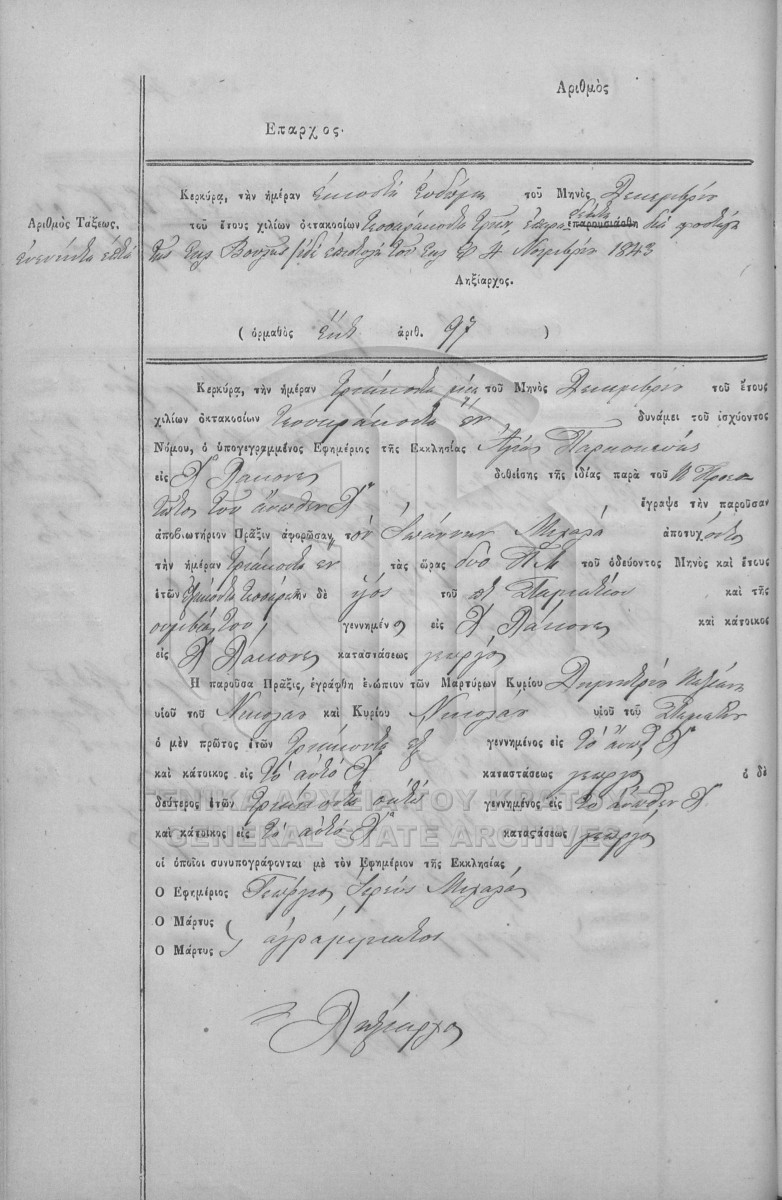 Αριθμὸς
Επαρχος.
Κερκύρα, τὴν ἡμέραν εἰκοστὴ ἑβδόμη τοῦ Μηνὸς Δεκεμβρίου
Αριθμὸς Τάξεως.
ἐνενήντα ἑπτά
τοῦ ἔτους χιλίων ὀκτακοσίων τεσσαράκοντα τρία ἐπαρουσιάσθη διὰ προσταγῆς
τῆς Βουλῆς 4 Νοεμβρίου 1843
Ληξίαρχος.
( ὁρμαθὸς ἀριθ. 97 )
Κερκύρα, τὴν ἡμέραν τριάκοντα μία τοῦ Μηνὸς Δεκεμβρίου τοῦ ἔτους
χιλίων ὀκτακοσίων τεσσαράκοντα ἕν δυνάμει τοῦ ἰσχύοντος
Νόμου, ὁ ὑπογεγραμμένος Εφημέριος τῆς Εκκλησίας Ἁγίας Παρασκευῆς
εἰς Χ Λάκονες δοθείσης τῆς ἰδίας παρὰ τοῦ Κ Προε-
τῶτος τοῦ ἄνωθεν Χ ἔγραψε τὴν παροῦσαν
ἀποβιωτήριον Πρᾶξιν ἀφορῶσαν τὸν Ἰωάννην Μιχαλᾶ ἀποτυχόντα
τὴν ἡμέραν τριάκοντα ἕν τὰς ὥρας δύο Π.Μ τοῦ ὁδεύοντος Μηνὸς καὶ ἔτους
ἐτῶν τριάκοντα τεσσάρων δὲ υἱὸς τοῦ Σταματίου καὶ τῆς
συμβίας του γεννημένος εἰς Χ Λάκονες καὶ κάτοικος
εἰς Χ Λάκονες καταστάσεως γεωργός
Η παροῦσα Πρᾶξις, ἐγράφθη ἐνώπιον τῶν Μαρτύρων Κυρίου Δημητρίου
υἱοῦ τοῦ Νικολάου καὶ Κυρίου Νικολάου υἱοῦ τοῦ Σταμάτη
ὁ μὲν πρῶτος ἐτῶν τριάκοντα ἕξ γεννημένος εἰς τὸ ἄνωθεν Χ
καὶ κάτοικος εἰς τὸ αὐτὸ Χ καταστάσεως γεωργός ὁ δὲ
δεύτερος ἐτῶν τριάκοντα ὀκτώ γεννημένος εἰς τὸ ἄνωθεν Χ
καὶ κάτοικος εἰς τὸ αὐτὸ Χ καταστάσεως γεωργός
οἱ ὁποῖοι συνυπογράφονται μὲ τὸν Εφημέριον τῆς Εκκλησίας
Ο Εφημέριος Γεώργιος Ἱερεύς Μιχαλᾶς
Ο Μάρτυς
Ο Μάρτυς ἀγράμματοι
Ληξίαρχος
ΓΕΝΙΚΑ ΑΡΧΕΙΑ ΤΟΥ ΚΡΑΤΟΥΣ
GENERAL STATE ARCHIVES